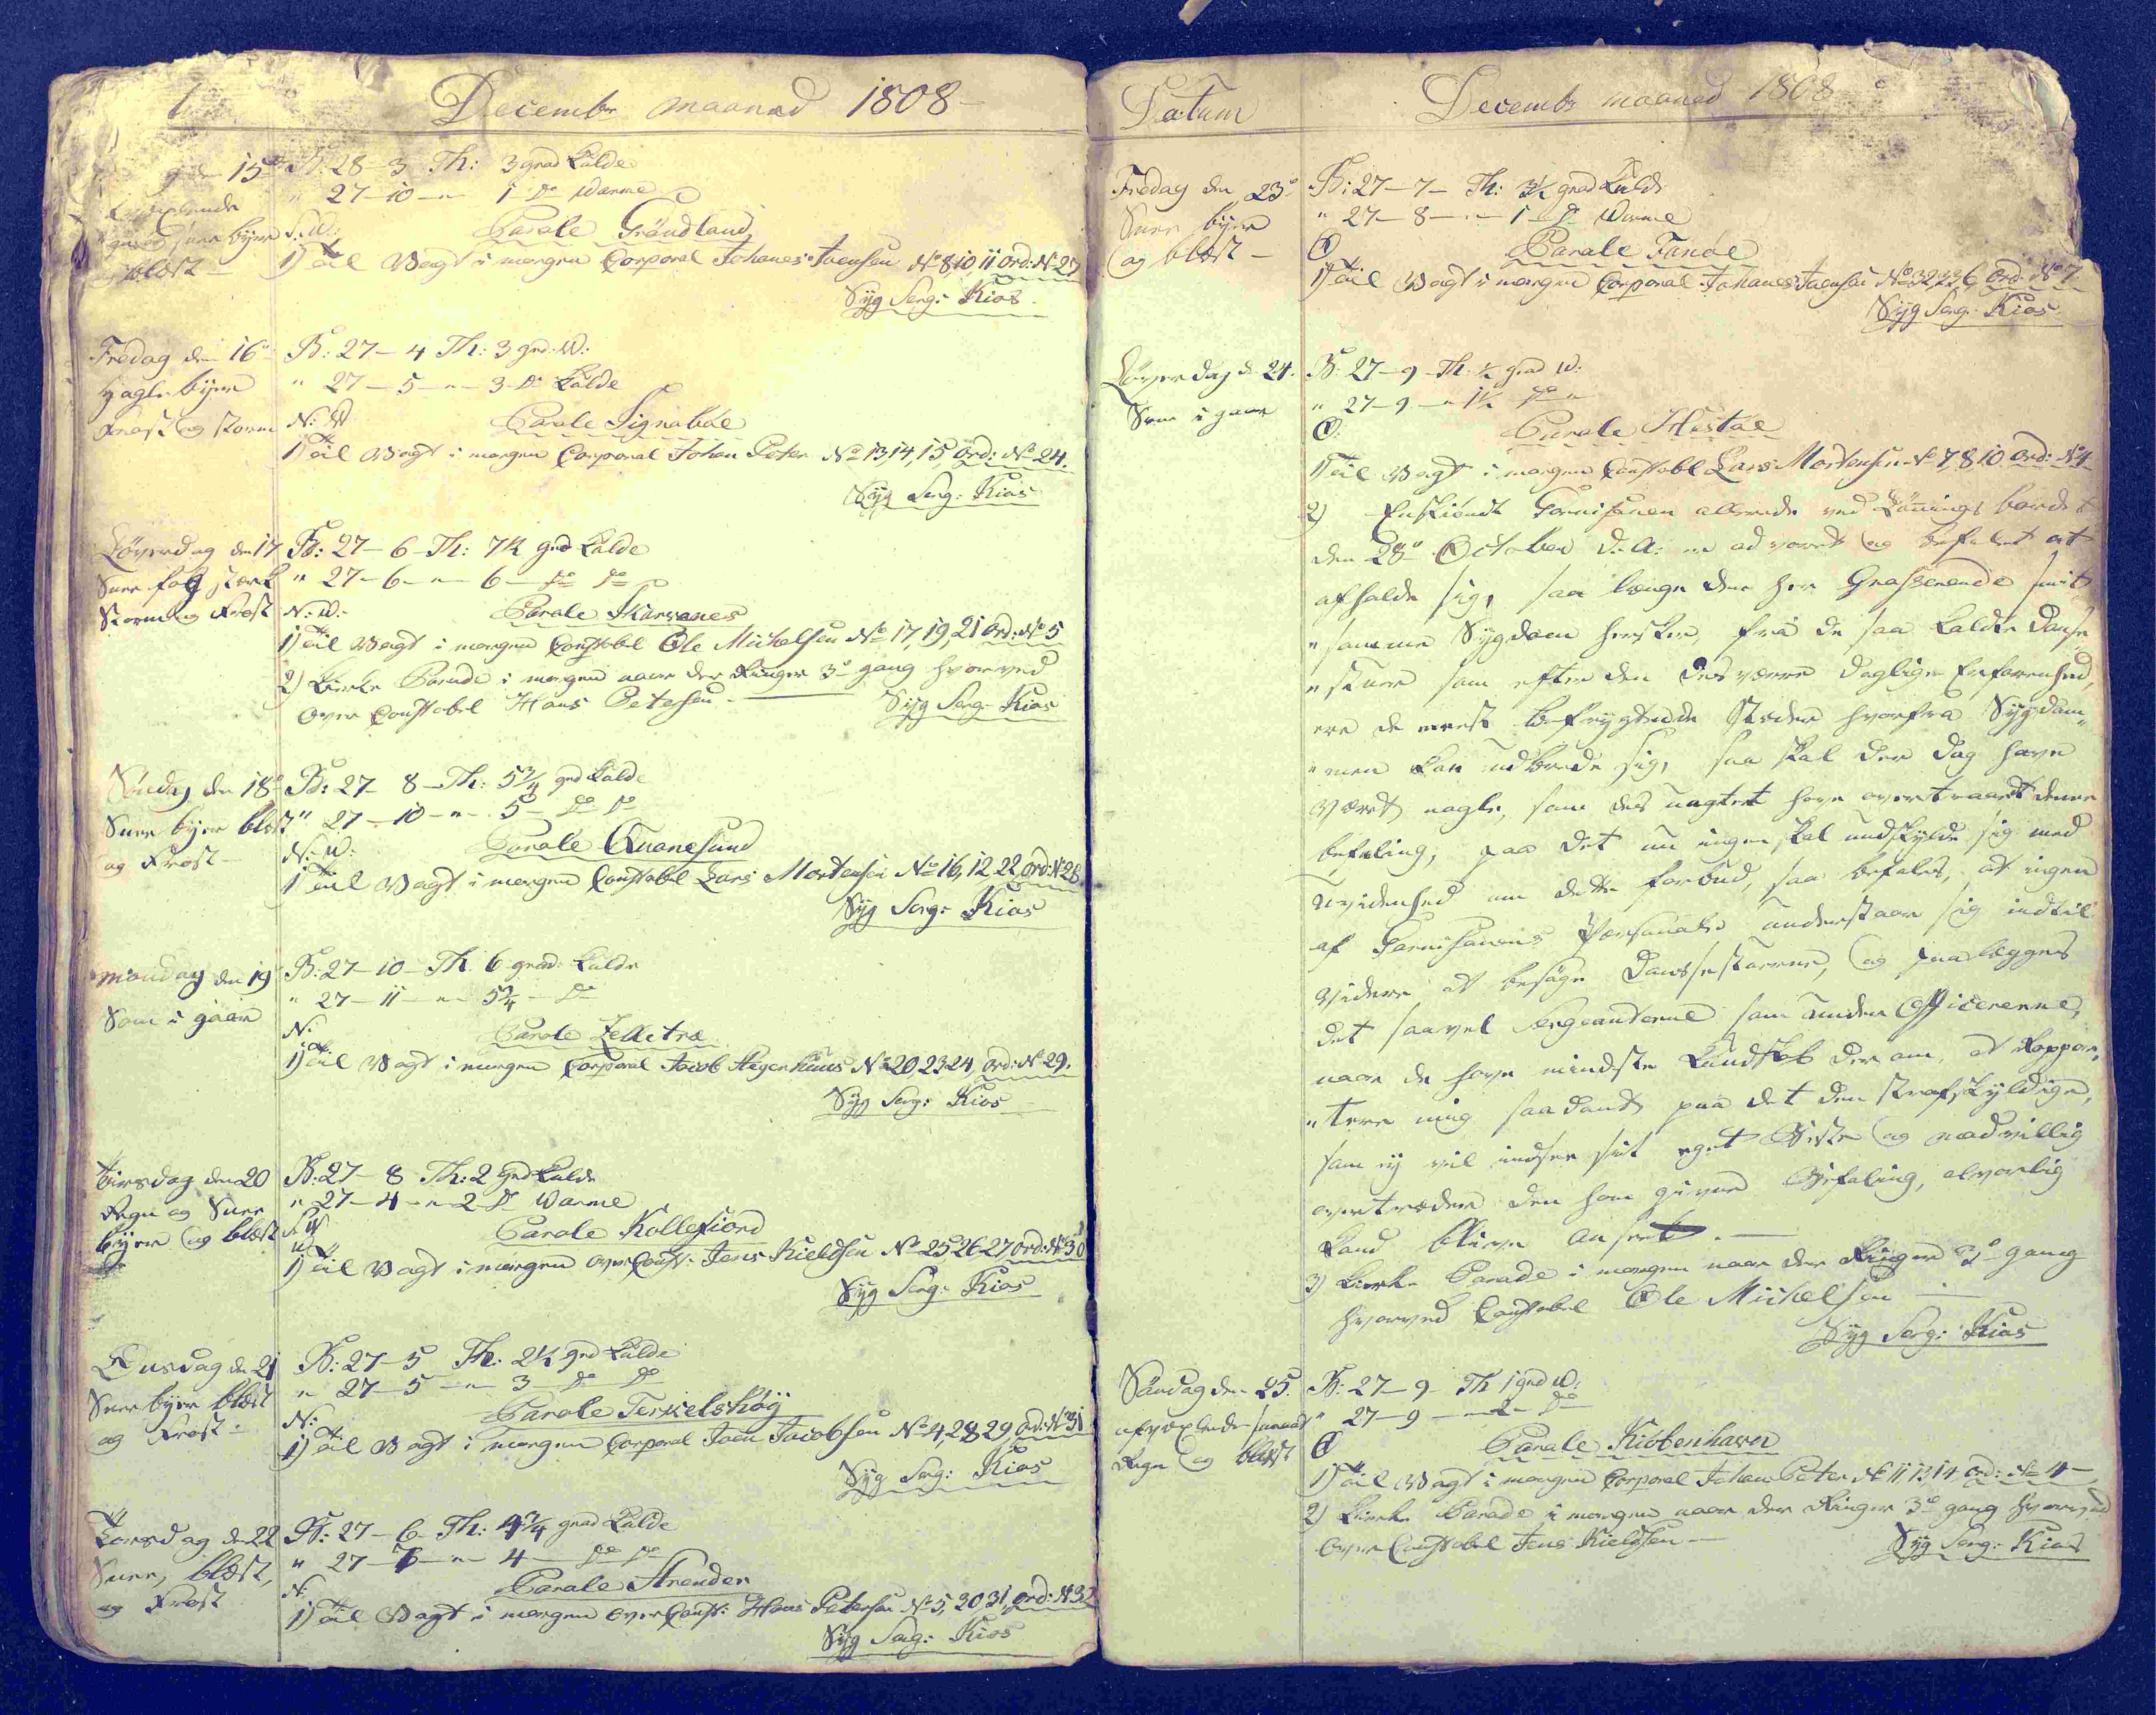 Decembr maanad 1808
den 15de B: 28-3 Th: 3 grad Kulde
" 27-10-"- 1 do Warme
og Snee byer S:W: Parole Grönland
og blæst 1) Til Vagt i morgen Corporal Johanes Joensen No 8, 10, 11 Ord: No 27
Syg Serg: Kios
Fredag den 16de B: 27-4 Th: 3 grd: W:
Hagle byer " 27-5-"-3 do Kulde
Frost og storm N:W Parole Signaboe
1) Til Vagt i morgen Corporal Johan Peter No 13, 14, 15, Ord: No 24.
Syg Serg: Kios
Löverdag den 17 B: 27-6-Th: 7½ grd Kulde
Snee fog stærk " 27-6-"-6-do do
Storm og Frost N:W:- Parole Skarvanes
1) Til Vagt i morgen Constabel Ole Michelsen No 17, 19, 21 Ord: No 5
2) Kirke Parade i morgen naar der Ringer 3de gang hvorved
Over Constabel Hans Petersen - Syg Serg: Kios
Söndag den 18de B: 27-8-Th: 5¾ grd Kulde
Snee byer blæst " 27-10-"-5-do do
og Frost- N:W: Parole Quanesund
1) Til Vagt i morgen Constabel Lars Mortensen No 16, 12, 22, Ord: No 28
Syg Serg: Kios
Mandag den 19 B: 27-10-Th: 6 grad: Kulde
Som i gaar " 27-11-"-5¾-do
N: Parole Zelletræ
1) Til Vagt i morgen Corporal Jacob Hegenhuus No 20, 23 24, Ord: No 29.
Syg Serg: Kios
Tirsdag den 20 B: 27-8 Th: 2 grd Kulde
Regn og Snee " 27-4-"-2 do Warme
byer og blæst S:W Parole Kollefiord
1) Til Vagt i morgen OverConst: Jens Kieldsen No 25 26 27 Ord: No 30
Syg Serg: Kios
Onsdag den 21 B: 27-5 Th: 2½ grd Kulde
Snee byer blæst " 27-5-"-3-do do
og Frost- N: Parole Terkelshöy
1) Til Vagt i morgen Corporal Joen Jacobsen No 4, 28 29, Ord: No 31
Syg Serg: Kios
Torsdag den 22 B: 27-6-Th: 4¾ grad Kulde
Snee, blæst, " 27-6-"-4-do do
og Frost N: Parole Strender
1) Til Vagt i morgen OverConst: Hans Petersen No 5, 20 31, Ord: No 32
Syg Serg: Kios
Datum Decembr maaned 1808
Fredag den 23de B: 27-7-Th: 3½ grad Kulde
Snee byer " 27-8-"-1-do Warme
og blæst- O Parole Fanöe
1) Til Vagt i morgen Corporal Johanes Joensen No 32, 6 Ord: No 7
Syg Serg: Kios
Löverdag d: 24. B: 27-9-Th: ½ grad W:
Som i gaar " 27-9-"1½ do "
O: Parole Hestöe
1) Til Vagt i morgen Constabl Lars Mortensen No 7 8 10 Ord: No 4
2) Enskiöndt Garnisonen allerede ved Lönnings bordet
den 28de October d: A: er advaret og befalet at
afholde sig, saa længe den her Grasserende smit
"somme Sygdom hersker, fra de saa kaldte Danse
"stuer som efter den desværre daglige Erfarenhed,
ere de meest befrygtende Stæder hvorfra Sygdom
"men kan udbrede sig, saa skal der dog have
været nogle, som des uagtet have overtraadt denne
befaling, paa det nu ingen skal undskylde sig med
Uvidenhed om dette forbud, saa befales, at ingen
af Garnisonens Personale understaar sig indtil
videre at besöge Dansestuerne, og paalægges
det saavel Sergeanterne som Under Officererne,
naar de have mindste Kundskab der om, at Rappor,
"tere mig saadant paa det den strafskyldige,
som ey vil indsee sit eget Beste og modvillig
overtræder den ham givne Befaling, alvorlig
kand blive anseet.
3) Kirke Parade i morgen naar der Ringer 3de gang
hvorved Constabel Ole Michelsen
Syg Serg: Kios
Söndag den 25. B: 27-9-Th 1 grd W:
afvexlende " 27-9-"-2-do
Regn og blæst O Parole Kiöbenhavn
1) Til Vagt i morgen Corporal Johan Peter No 11 13 14 Ord: No 4-
2) Kirke Parade i morgen naar der Ringer 3de gang hvorved
Over Constabel Jens Kieldsen- Syg Serg: Kios